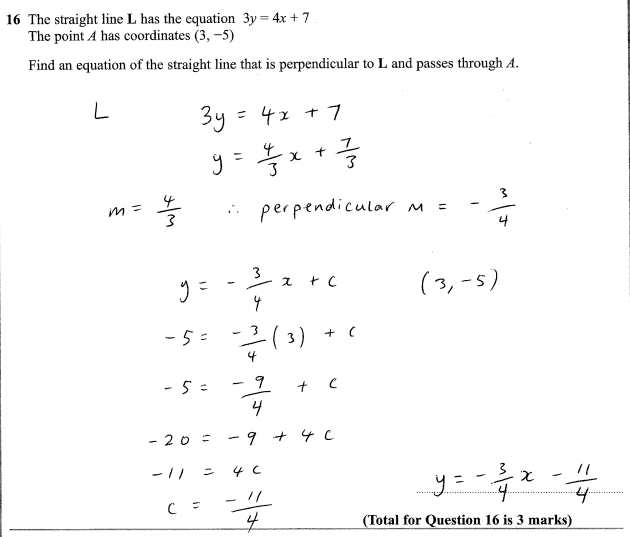 16 The straight line L has the equation 3y = 4x + 7
The point A has coordinates (3, −5)
Find an equation of the straight line that is perpendicular to L and passes through A.
L 3y = 4x + 7
y = 4/3 x + 7/3
m = 4/3 ∴ perpendicular m = - 3/4
y = - 3/4 x + c (3, -5)
-5 = - 3/4 (3) + c
-5 = - 9/4 + c
-20 = -9 + 4c
-11 = 4c
c = - 11/4
y = - 3/4 x - 11/4
(Total for Question 16 is 3 marks)